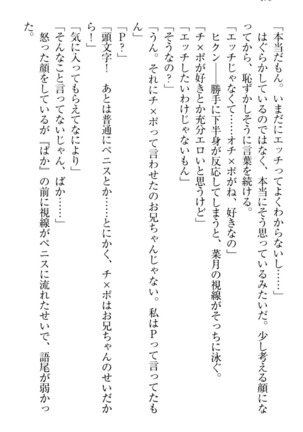 「本当だもん。いまだにエッチってよくわからないし……」
はぐらかしているのではなく、本当にそう思っているみたいだ。少し考える顔にな
ってから、恥ずかしそうに言葉を続ける。
「エッチじゃなくて……オチ×ポがね、好きなの」
ヒクン――勝手に下半身が反応してしまうと、菜月の視線がそっちに泳ぐ。
「チ×ポが好きとか充分エロいと思うけど」
「エッチしたいわけじゃないもん」
「そうなの？」
「うん。それにチ×ポって言わせたのお兄ちゃんじゃない。私はPって言ってたも
ん」
「P？」
「頭文字！　あとは普通にペニスとか……とにかく、チ×ポはお兄ちゃんのせいだか
ら！」
「気に入ってもらえてなにより」
「そんなこと言ってないじゃん、ばか……」
怒った顔をしているが『ばか』の前に視線がペニスに流れたせいで、語尾が弱かっ